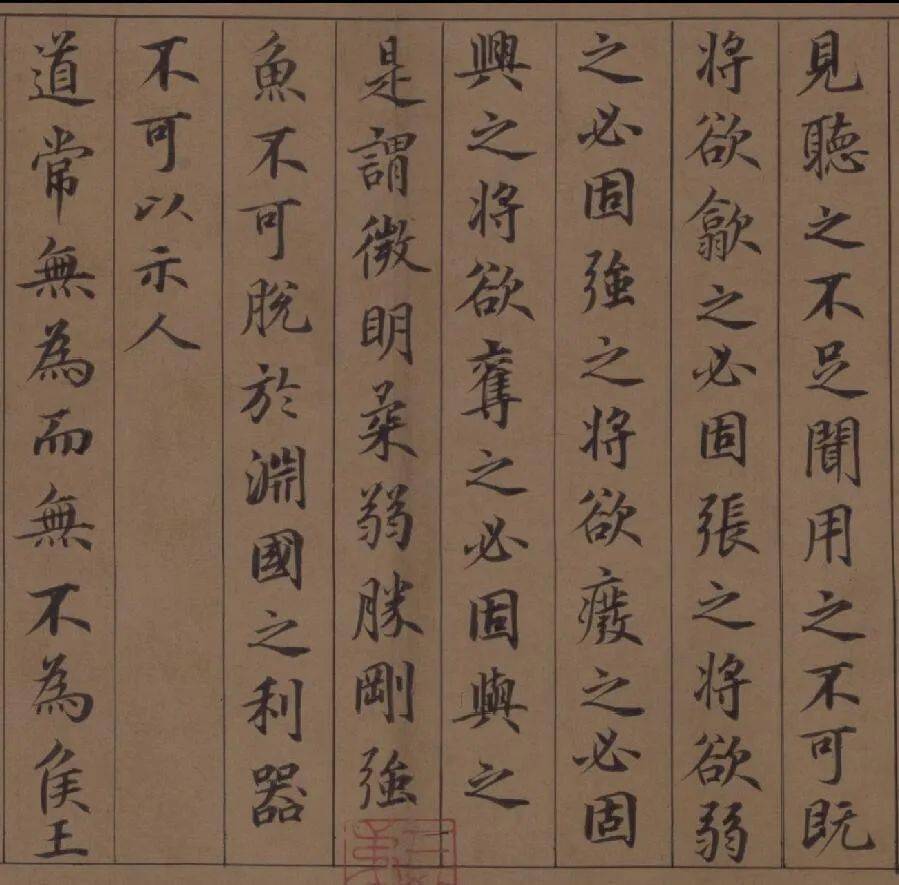 見聽之不足聞用之不可既
將欲歙之必固張之將欲弱
之必固強之將欲癈之必固
興之將欲奪之必固與之
是謂微明柔弱勝剛強
魚不可脫於淵國之利器
不可以示人
道常無為而無不為侯王